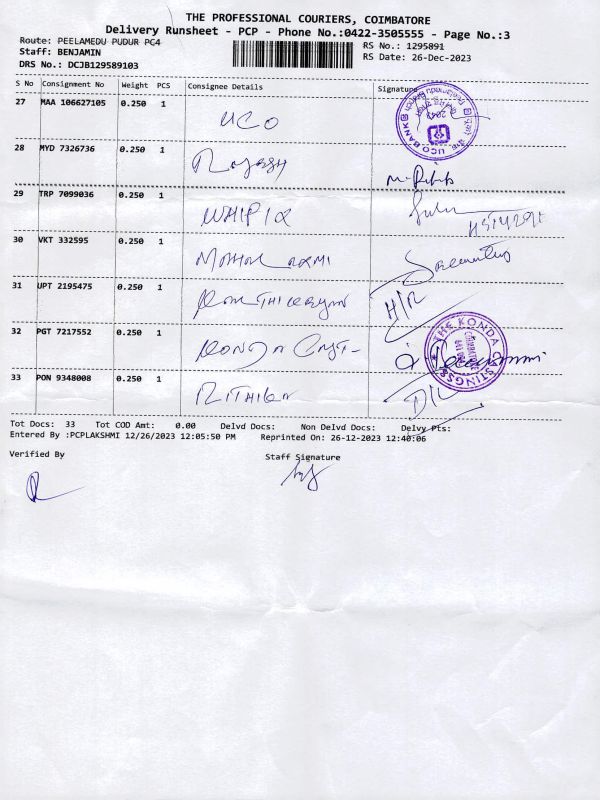 THE PROFESSIONAL COURIERS, COIMBATORE
Delivery Runsheet - PCP - Phone No.:0422-3505555 - Page No.:3
Route: PEELAMEDU PUDUR PC4
RS No.: 1295891
Staff: BENJAMIN
RS Date: 26-Dec-2023
DRS No.: DCJB129589103
S No Consignment No Weight PCS Consignee Details Signature
27 MAA 106627105 0.250 1 UCO
UCO BANK
28 MYD 7326736 0.250 1 Rajesh
29 TRP 7099036 0.250 1
30 VKT 332595 0.250 1
31 UPT 2195475 0.250 1 H/R
32 PGT 7217552 0.250 1
THE KONDA
33 PON 9348008 0.250 1
Tot Docs: 33 Tot COD Amt: 0.00 Delvd Docs: Non Delvd Docs: Delvy Pts:
Entered By :PCPLAKSHMI 12/26/2023 12:05:50 PM Reprinted On: 26-12-2023 12:40:06
Verified By Staff Signature